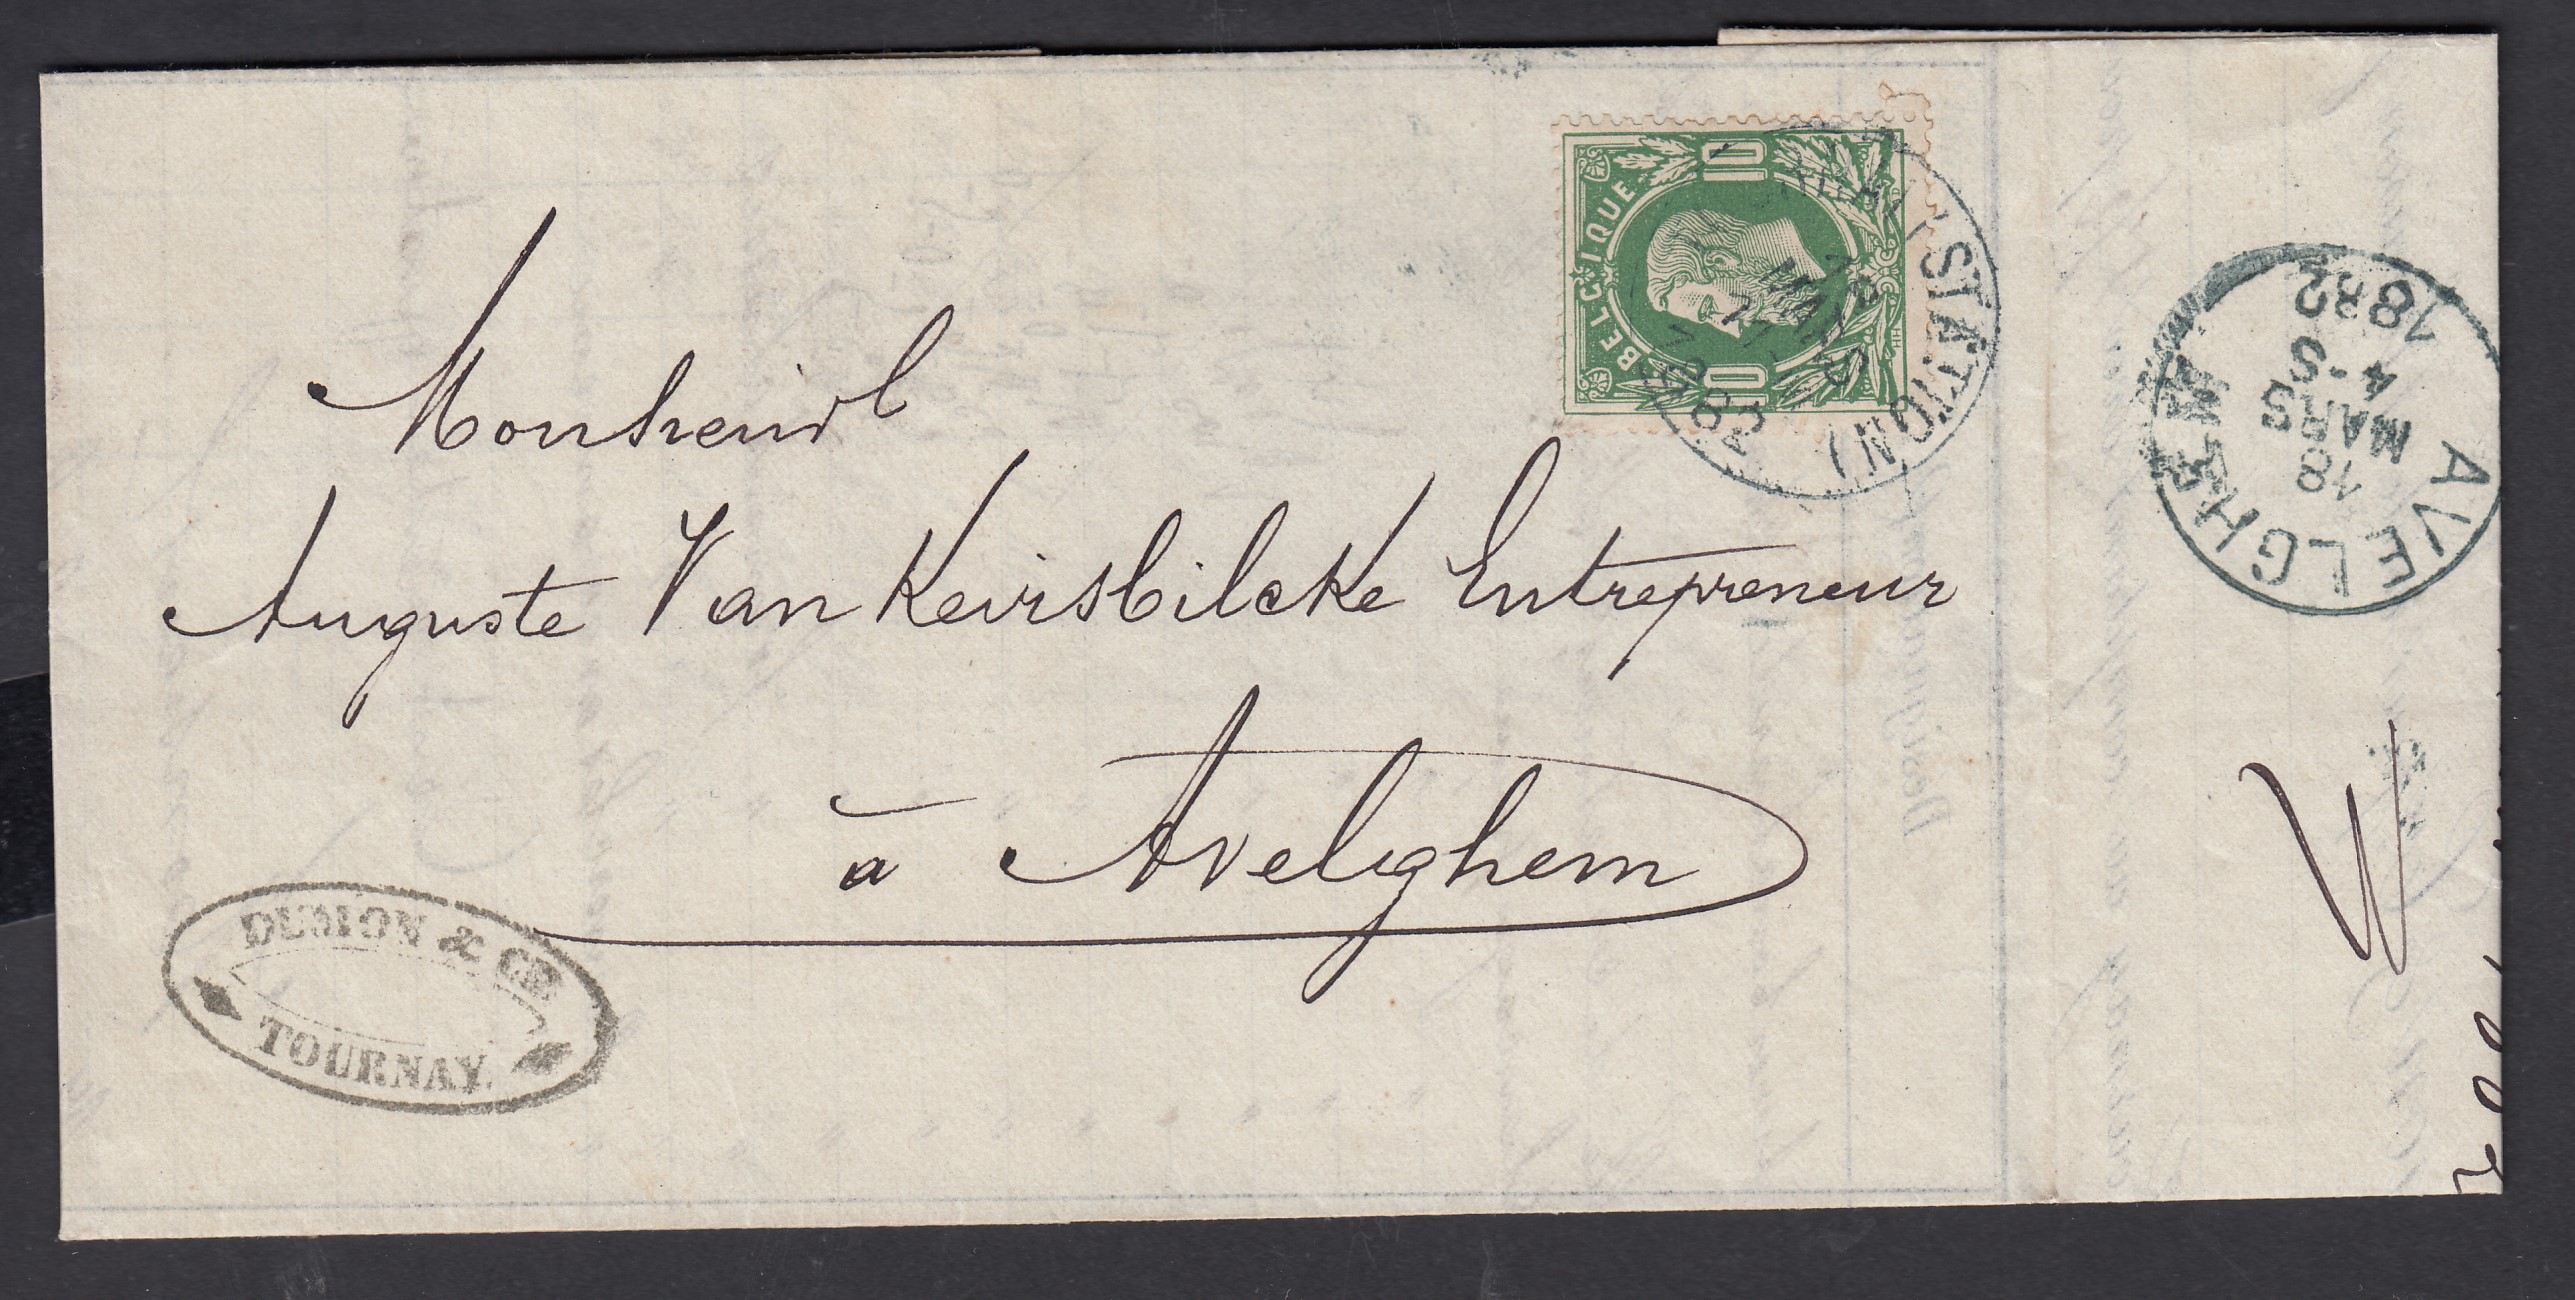 Monsieur
Auguste Van Keirsbilcke Entrepreneur
à Avelghem
DUMON & CIE
TOURNAY
BELGIQUE
10 10
(STATION)
18
MARS
1882
AVELGHEM
18
MARS
4-S
1882